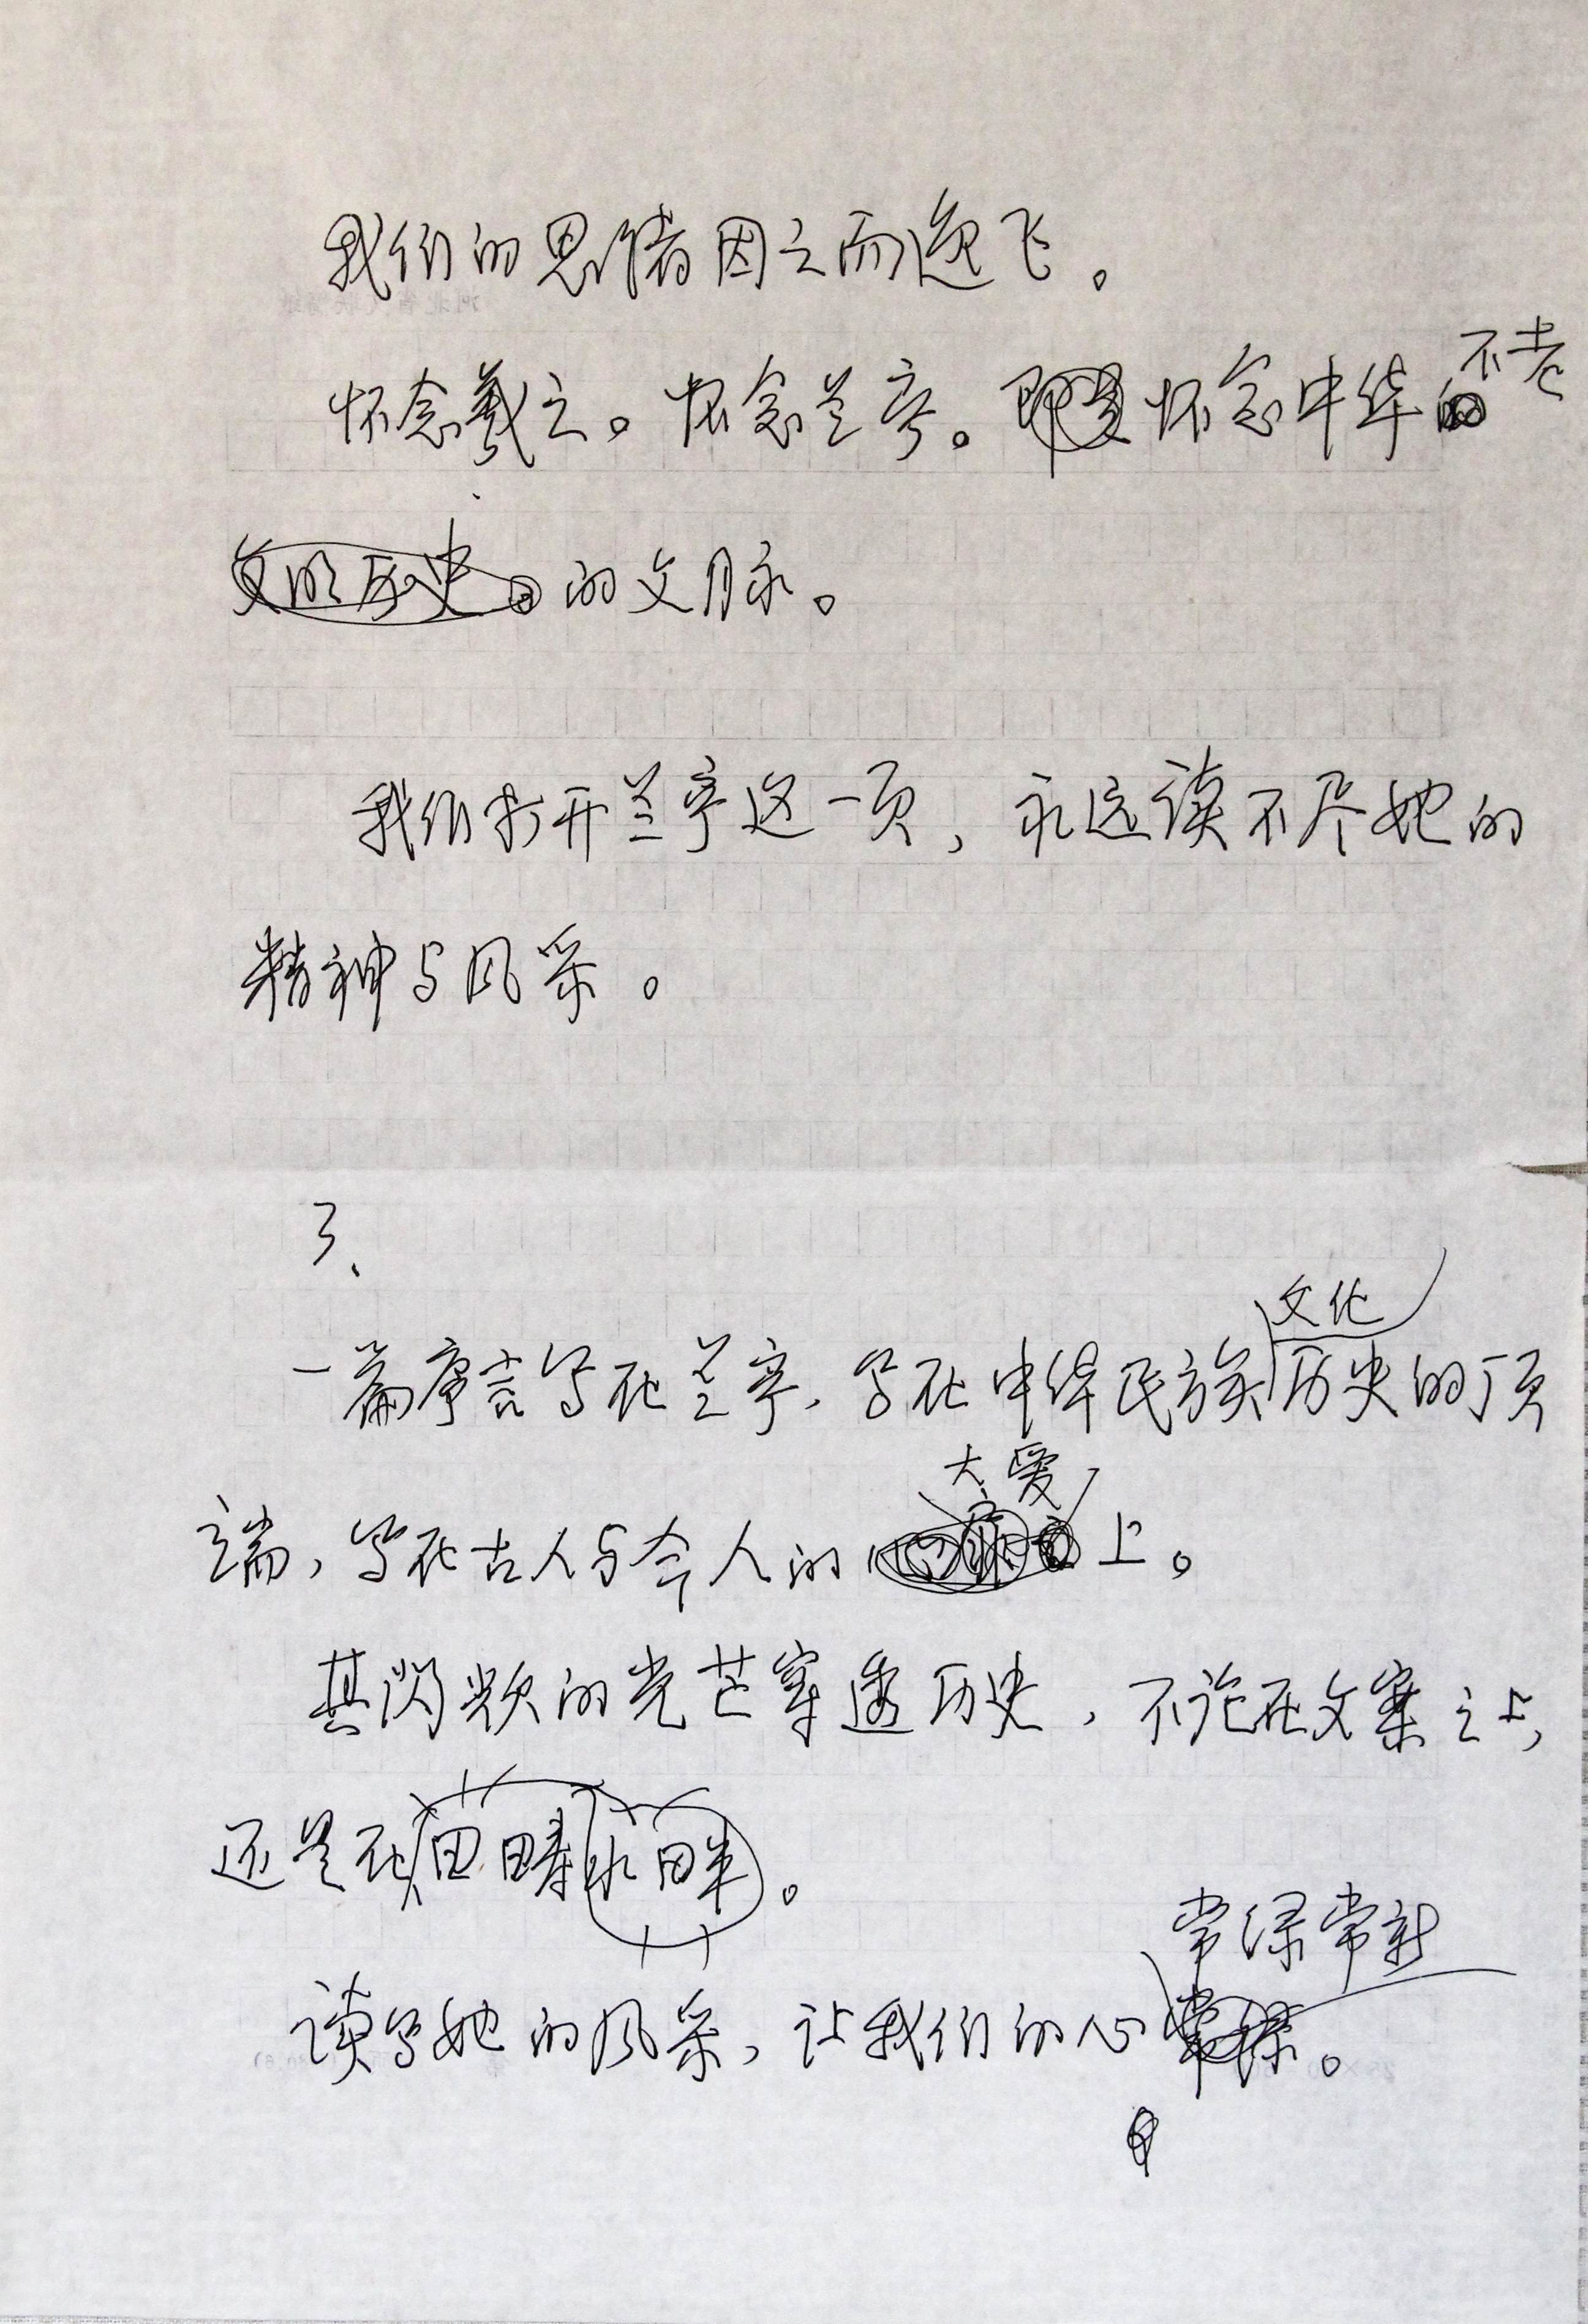 我们的思绪因之而逸飞。
怀念羲之。怀念兰亭。怀念中华不老
的文脉。
我们打开兰亭这一页，永远读不尽她的
精神与风采。
3、
文化
一篇序言写在兰亭，写在中华民族历史的顶
大爱
端，写在古人与今人的上。
其闪烁的光芒穿透历史，不论在文案之上，
还是在田畴水畔。
常绿常新
读写她的风采，让我们的心。